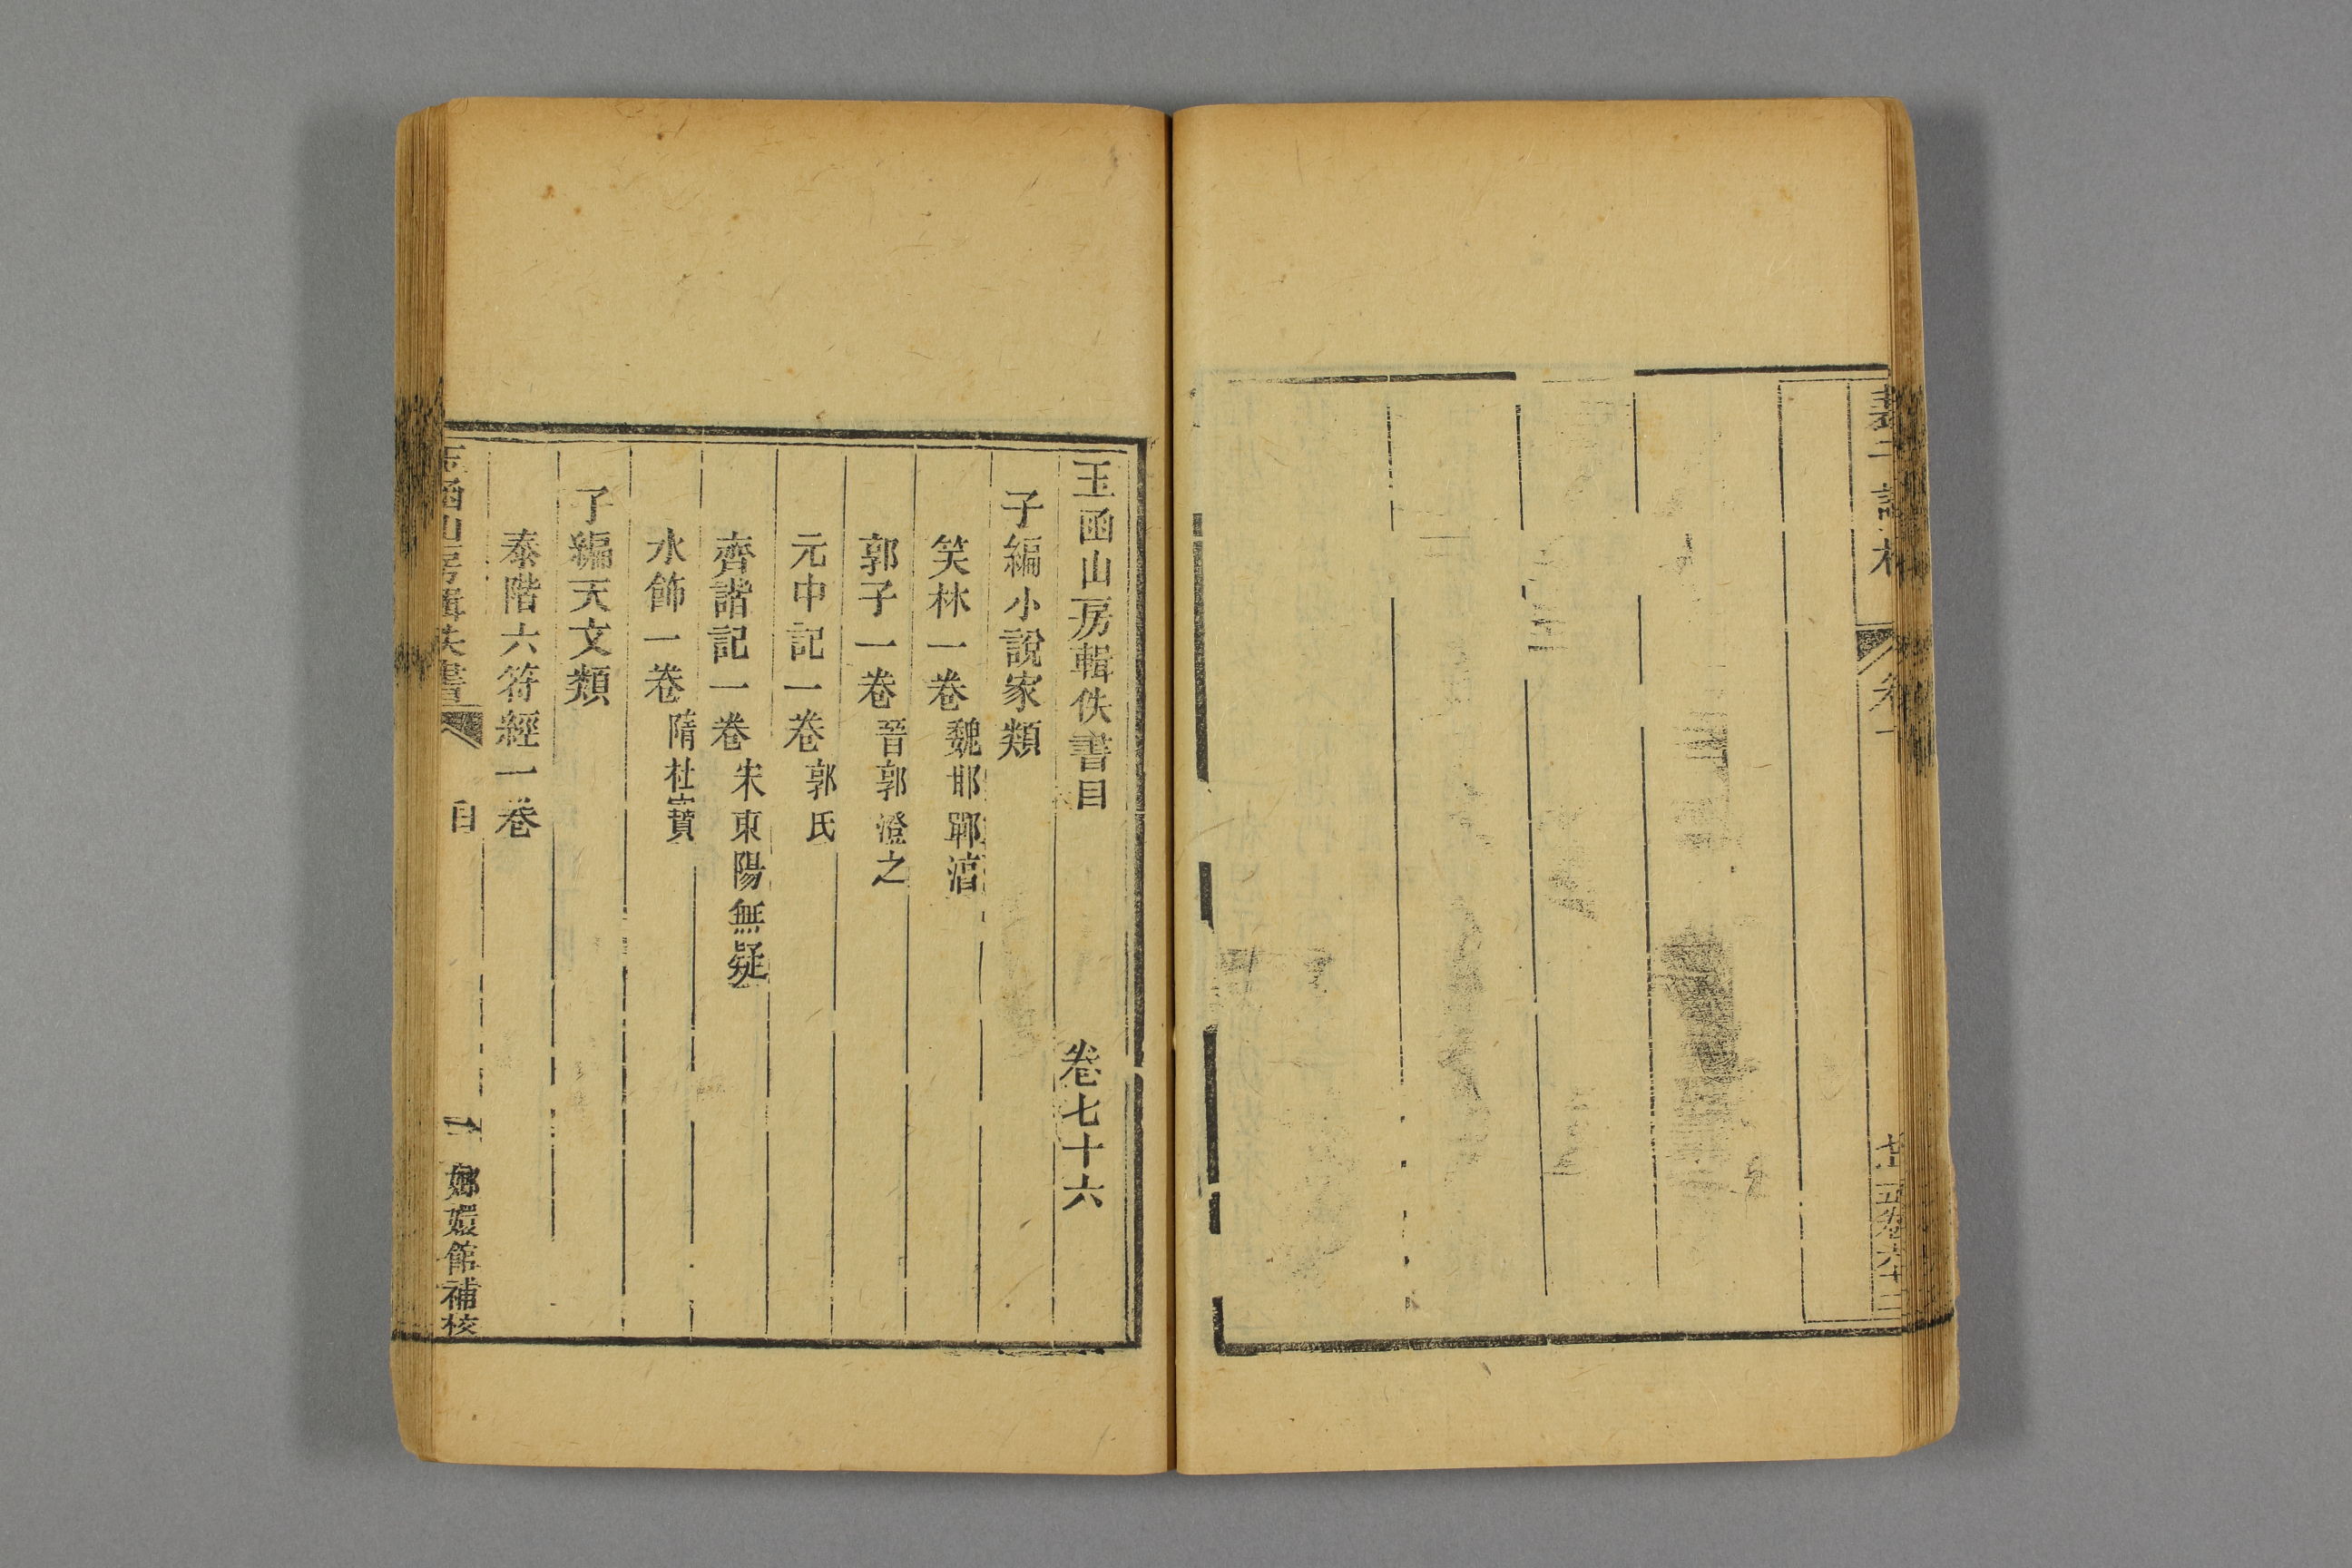 卷一
玉函山房輯佚書目 卷七十六
子編小說家類
笑林一卷 魏邯鄲淳
郭子一卷 晉郭澄之
元中記一卷 郭氏
齊諧記一卷 宋東陽無疑
水飾一卷 隋杜寶
子編天文類
泰階六符經一卷
玉函山房輯佚書 目 一 嫏嬛館補校